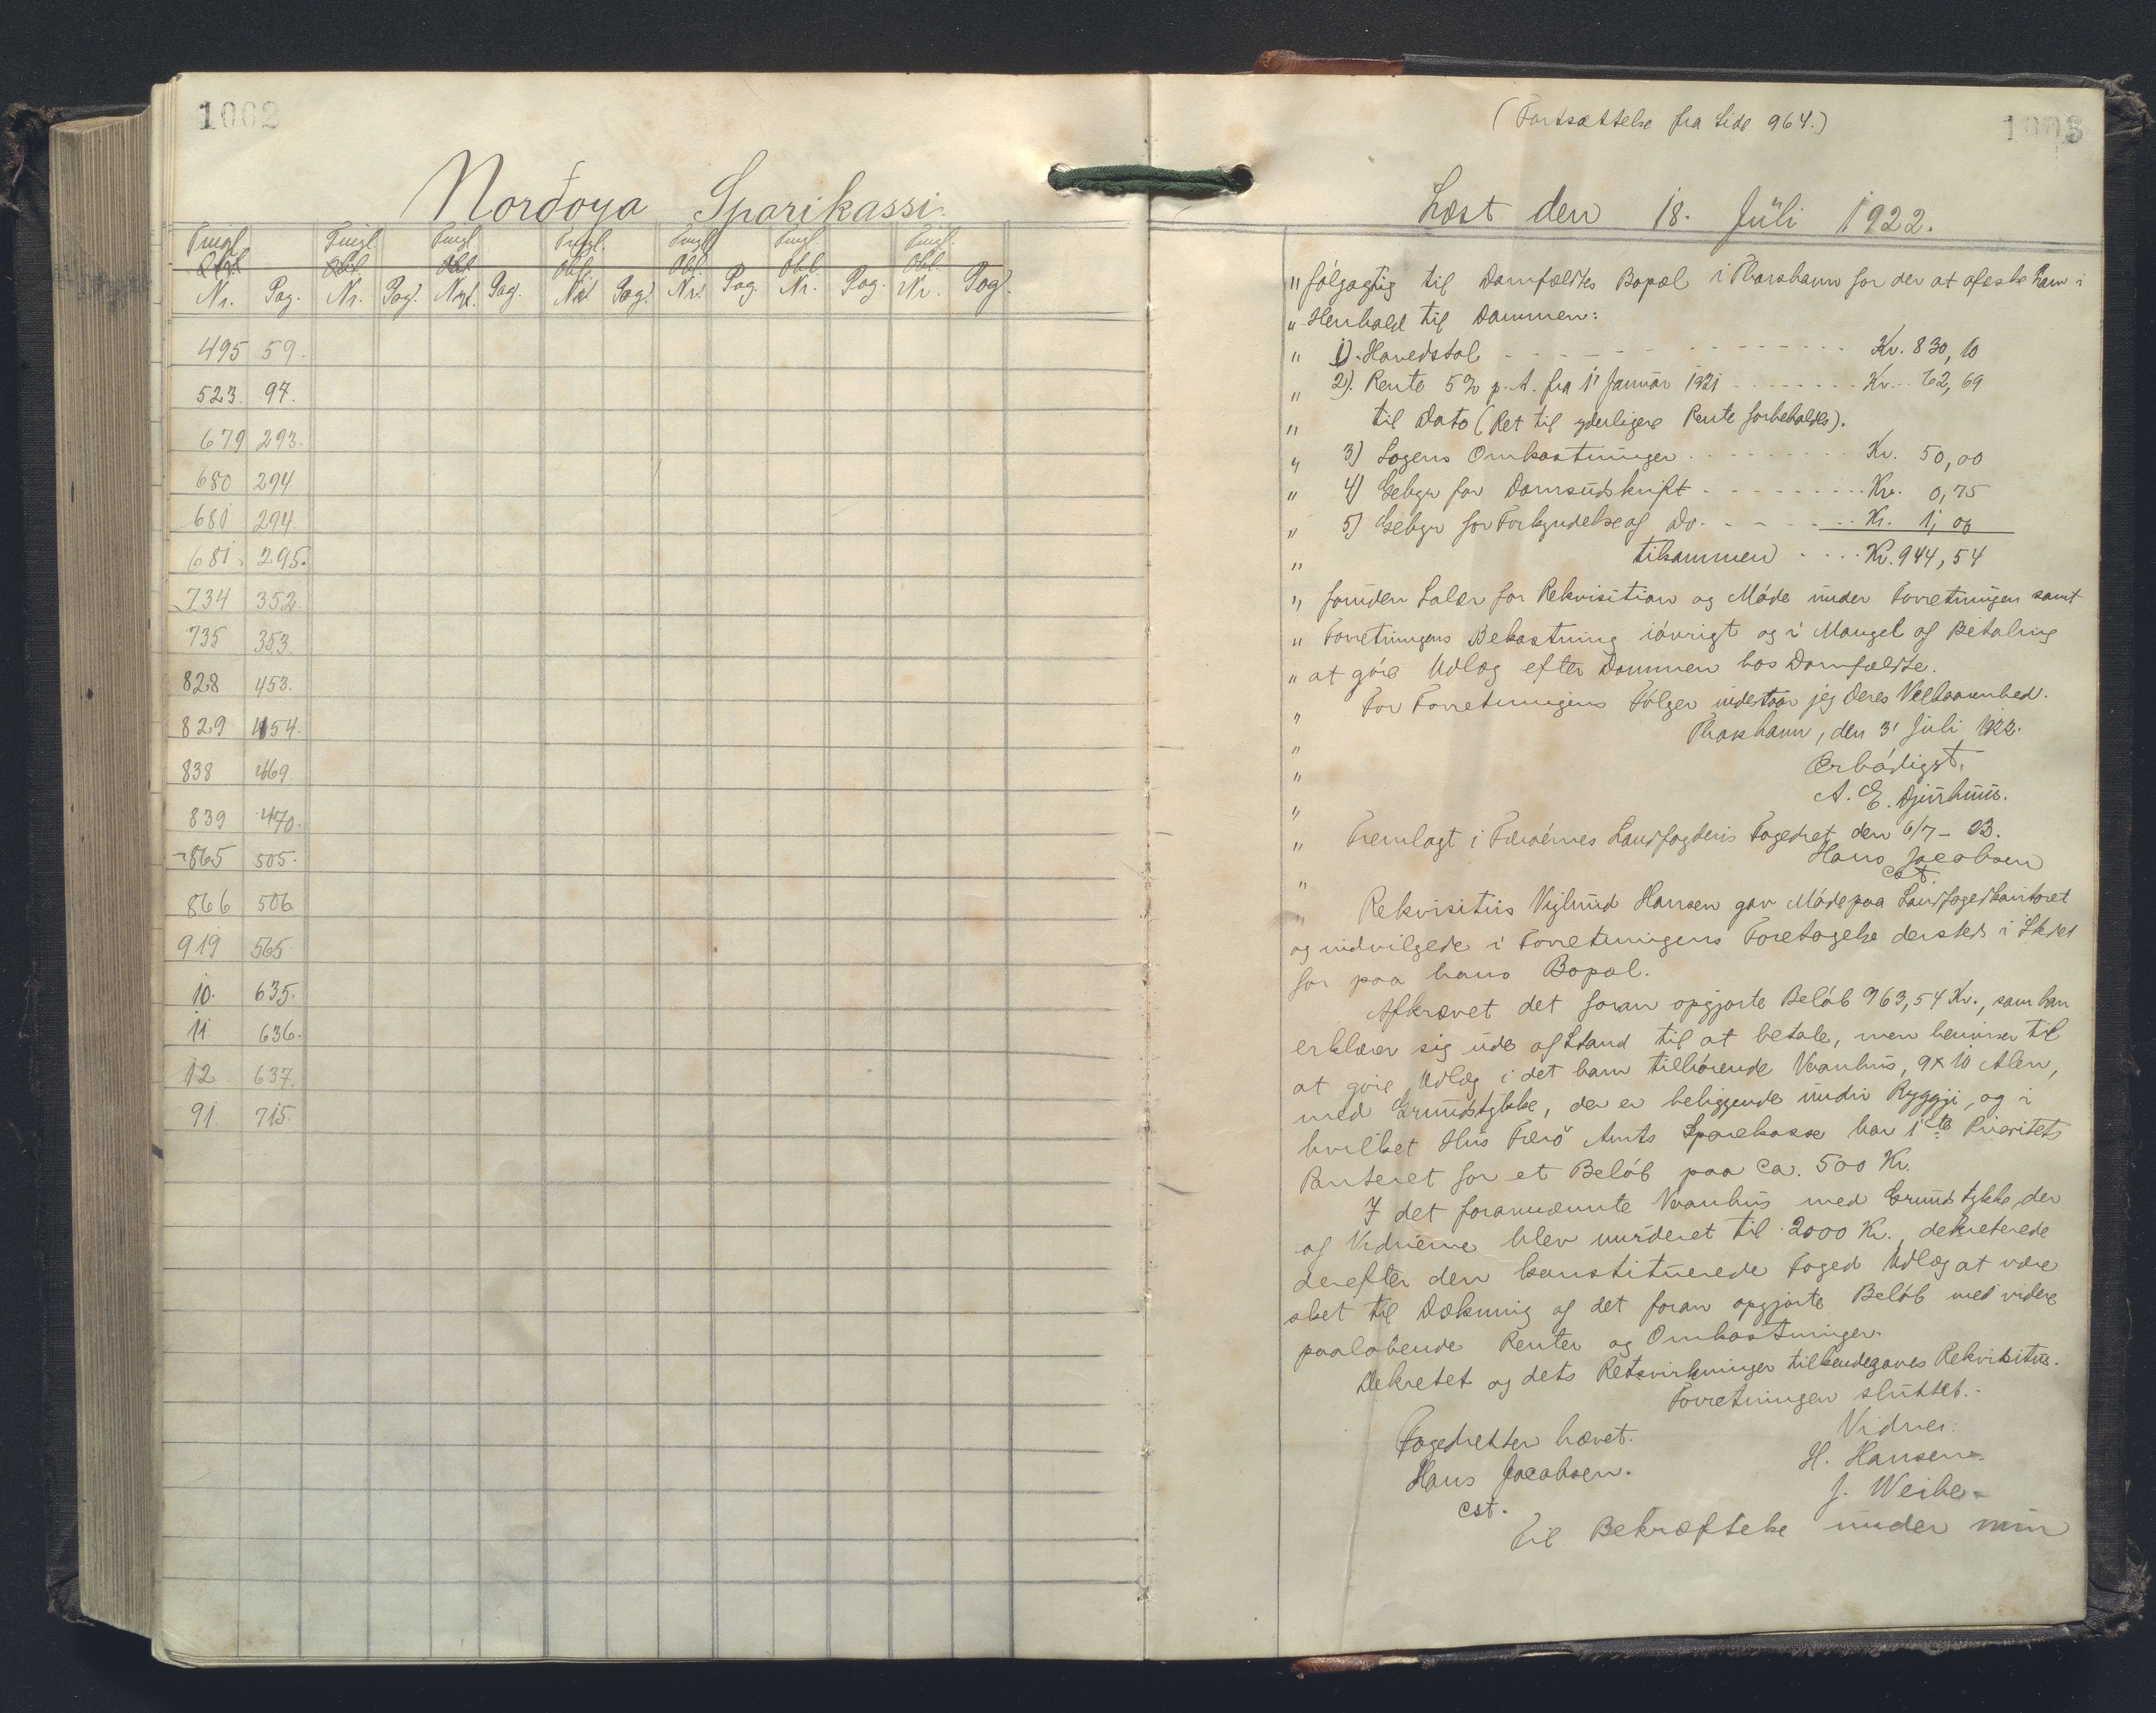 1002
Norðoya Sparikassi.
Tingl. Tingl. Tingl. Tingl. Tingl. Tingl. Tingl.
Obl. Obl. Obl. Obl. Obl. Obl. Obl.
Nr. Pag. Nr. Pag. Nr. Pag. Nr. Pag. Nr. Pag. Nr. Pag. Nr. Pag.
495 59.
523. 97.
679 293.
680 294
681 294.
681. 295.
734 352.
735 353.
828 453.
829 454.
838 469.
839 470.
865 505.
866 506.
919 565.
10. 635.
11 636.
12 637.
91. 715.
1003
(Fortsættelse fra Side 964.)
Læst den 18. Juli 1922.
" følgagtig til Domfældtes Bopæl i Thorshavn for der at afæske ham i
" Henhold til Dommen:
" 1). Hovedstol Kr. 830,10
" 2). Rente 5% p. A. fra 1' Januar 1921 Kr. 62,69
" til Dato (Ret til yderligere Rente forbeholdes).
" 3) Sagens Omkostninger Kr. 50,00
" 4) Gebyr for Domsudskrift Kr. 0,75
" 5) Gebyr for Forkyndelse af Do. Kr. 1,00
" tilsammen Kr. 944,54
" foruden Salær for Rekvisition og Møde under Forretningen samt
" Forretningens Bekostning iøvrigt og i Mangel af Betaling
" at gøre Udlæg efter Dommen hos Domfældte.
" For Forretningens Følger indestaar jeg Deres Velbaarenhed.
" Thorshavn, den 3' Juli 1922.
" Ærbødigst.
" A. E. Djurhuus.
" Fremlagt i Færøernes Landfogderis Fogedret den 6/7 -
" Hans Jacobsen
cst.
" Rekvisitus Viglund Hansen gav Møde paa Landfogedkontoret
og indvilgede i Forretningens Foretagelse dersteds i Stedet
for paa hans Bopæl.
Afkrævet det foran opgjorte Beløb 963,54 Kr., som han
erklærer sig ude af Stand til at betale, men henviser til
at gøre Udlæg i det ham tilhørende Vaanhus, 9 x 10 Alen,
med Grundstykke, der er beliggende undir Ryggji, og i
hvilket Hus Færø Amts Sparekasse har 1ste Prioritets
Panteret for et Beløb paa ca. 500 Kr.
I det forannævnte Vaanhus med Grundstykke, der
af Vidnerne blev vurderet til 2000 Kr., dekreterede
derefter den konstituerede Foged Udlæg at være
sket til Dækning af det foran opgjorte Beløb med videre
paaløbende Renter og Omkostninger.
Dekretet og dets Retsvirkninger tilkendegaves Rekvisitus.
Forretningen sluttet.
Fogedretten hævet. Vidner:
Hans Jacobsen. H. Hansen
cst. J. Weihe
Til Bekræftelse under min